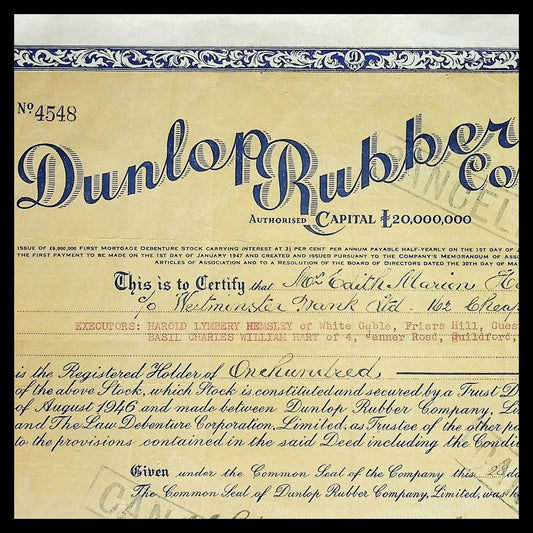 No 4548
Dunlop Rubber Co
CANCELL
AUTHORISED CAPITAL £20,000,000
ISSUE OF £6,000,000 FIRST MORTGAGE DEBENTURE STOCK CARRYING INTEREST AT 3½ PER CENT PER ANNUM PAYABLE HALF-YEARLY ON THE 1ST DAY OF J
THE FIRST PAYMENT TO BE MADE ON THE 1ST DAY OF JANUARY 1947 AND CREATED AND ISSUED PURSUANT TO THE COMPANY'S MEMORANDUM OF ASSO
ARTICLES OF ASSOCIATION AND TO A RESOLUTION OF THE BOARD OF DIRECTORS DATED THE 30TH DAY OF MA
This is to Certify that Mrs Edith Marion H
c/o Westminster Bank Ltd. 162 Cheap
EXECUTORS: HAROLD LYMBERY HEMSLEY of White Gable, Friars Hill, Gues
BASIL CHARLES WILLIAM HART of 4, Jenner Road, Guildford,
is the Registered Holder of One hundred
of the above Stock, which Stock is constituted and secured by a Trust D
of August 1946 and made between Dunlop Rubber Company, Li
and The Law Debenture Corporation, Limited, as Trustee of the other pa
to the provisions contained in the said Deed including the Condi
Given under the Common Seal of the Company this 28 da
The Common Seal of Dunlop Rubber Company, Limited, was h
CAN